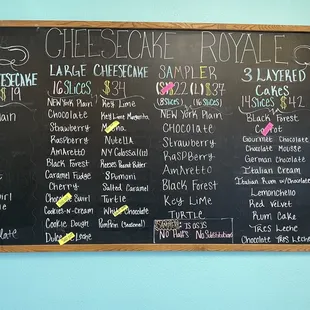 CHEESECAKE ROYALE
CHEESECAKE
$19
Large Cheesecake
16 Slices $34
New York Plain
Chocolate
Strawberry
Raspberry
Amaretto
Black Forest
Caramel Fudge
Cherry
Chocolate Swirl
Cookies-n-Cream
Cookie Dough
Dulce de Leche
Key Lime
Key Lime Margarita
Nutella
NY Colossal
Reeses Peanut Butter
Spumoni
Salted Caramel
Turtle
White Chocolate
Pumpkin (Seasonal)
SAMPLER
$22 (L) $37
(8 Slices) (16 Slices)
New York Plain
Chocolate
Strawberry
Raspberry
Amaretto
Black Forest
Key Lime
Turtle
Sampler is as is
No Half's No Substitutions
3 Layered
Cakes
14 Slices $42
Black Forest
Carrot
Gourmet Chocolate
Chocolate Mousse
German Chocolate
Italian Cream
Italian Rum w/Chocolate
Lemonchello
Red Velvet
Rum Cake
Tres Leche
Chocolate Tres Leche